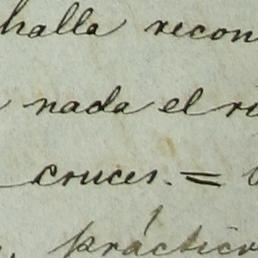 halla recon
nada el ri
cruces. =
práctico